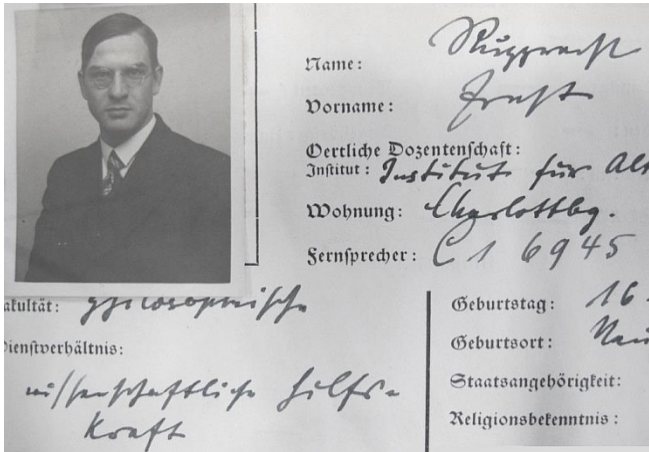 Name: Rupprecht
Vorname: Ernst
Oertliche Dozentenschaft:
Institut: Institut für Alt
Wohnung: Charlottbg.
Fernsprecher: C 1 6945
akultät: philosophische
Dienstverhältnis:
wissenschaftliche Hilfs-
kraft
Geburtstag: 16.
Geburtsort: Neu
Staatsangehörigkeit:
Religionsbekenntnis: